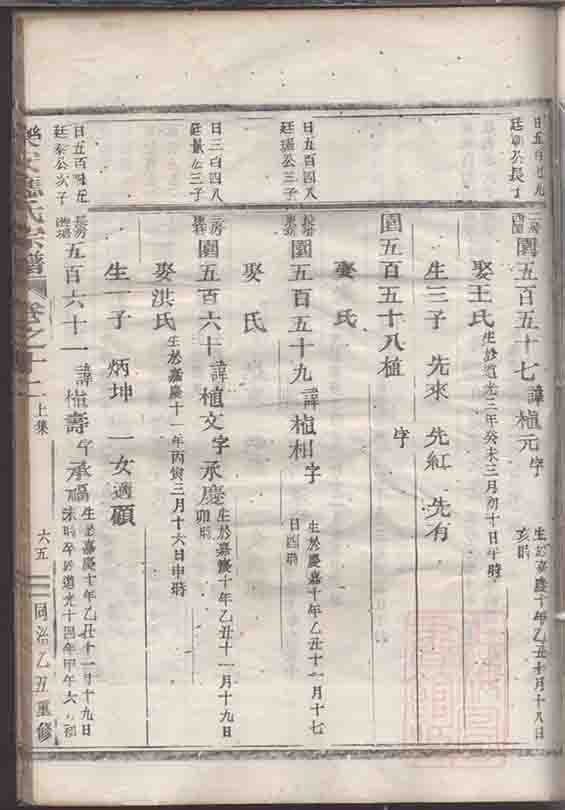 廷
公長子
園五百五十七 諱植元 字 生於嘉慶十年乙丑十月十八日
亥時
娶王氏 生於道光三年癸未三月初十日午時
生三子 先來 先紅 先有
園五百五十八植 字
娶 氏
日五百四八
廷瑞公三子
長房
園五百五十九 諱植相 字 生於慶嘉十年乙丑十一月十七
日酉時
娶 氏
日三百四八
公三子
園五百六十 諱植文 字承慶 生於嘉慶十年乙丑十一月十九日
卯時
娶洪氏 生於嘉慶十一年丙寅三月十六日申時
生一子 炳坤 一女適碩
日五百
廷泰公次子
長房
五百六十一 諱植壽 字承福 生於嘉慶十年乙丑十一月十九日
未時卒於道光十四年甲午六月初
氏宗譜 卷之十二 上集 六五 同治乙丑重修